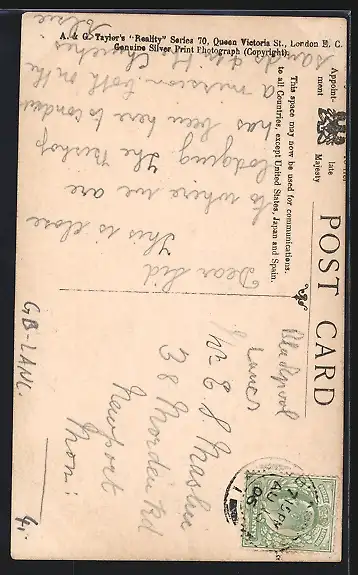 A. & G. Taylor's "Reality" Series 70, Queen Victoria St., London E. C.
Genuine Silver Print Photograph (Copyright).
Appoint-
ment
late
Majesty
POST CARD
This space may now be used for communications,
to all Countries, except United States, Japan and Spain.
Dear Sid
This is close
to where we are
lodging The Bishop
has been here to conduct
a mission both on the
sands & in the Churches
Blackpool
Lancs
Mr E S Maslin
38 Morden Rd
Newport
Mon:
7.15 PM
AU
06
GB-LANC.
4,-